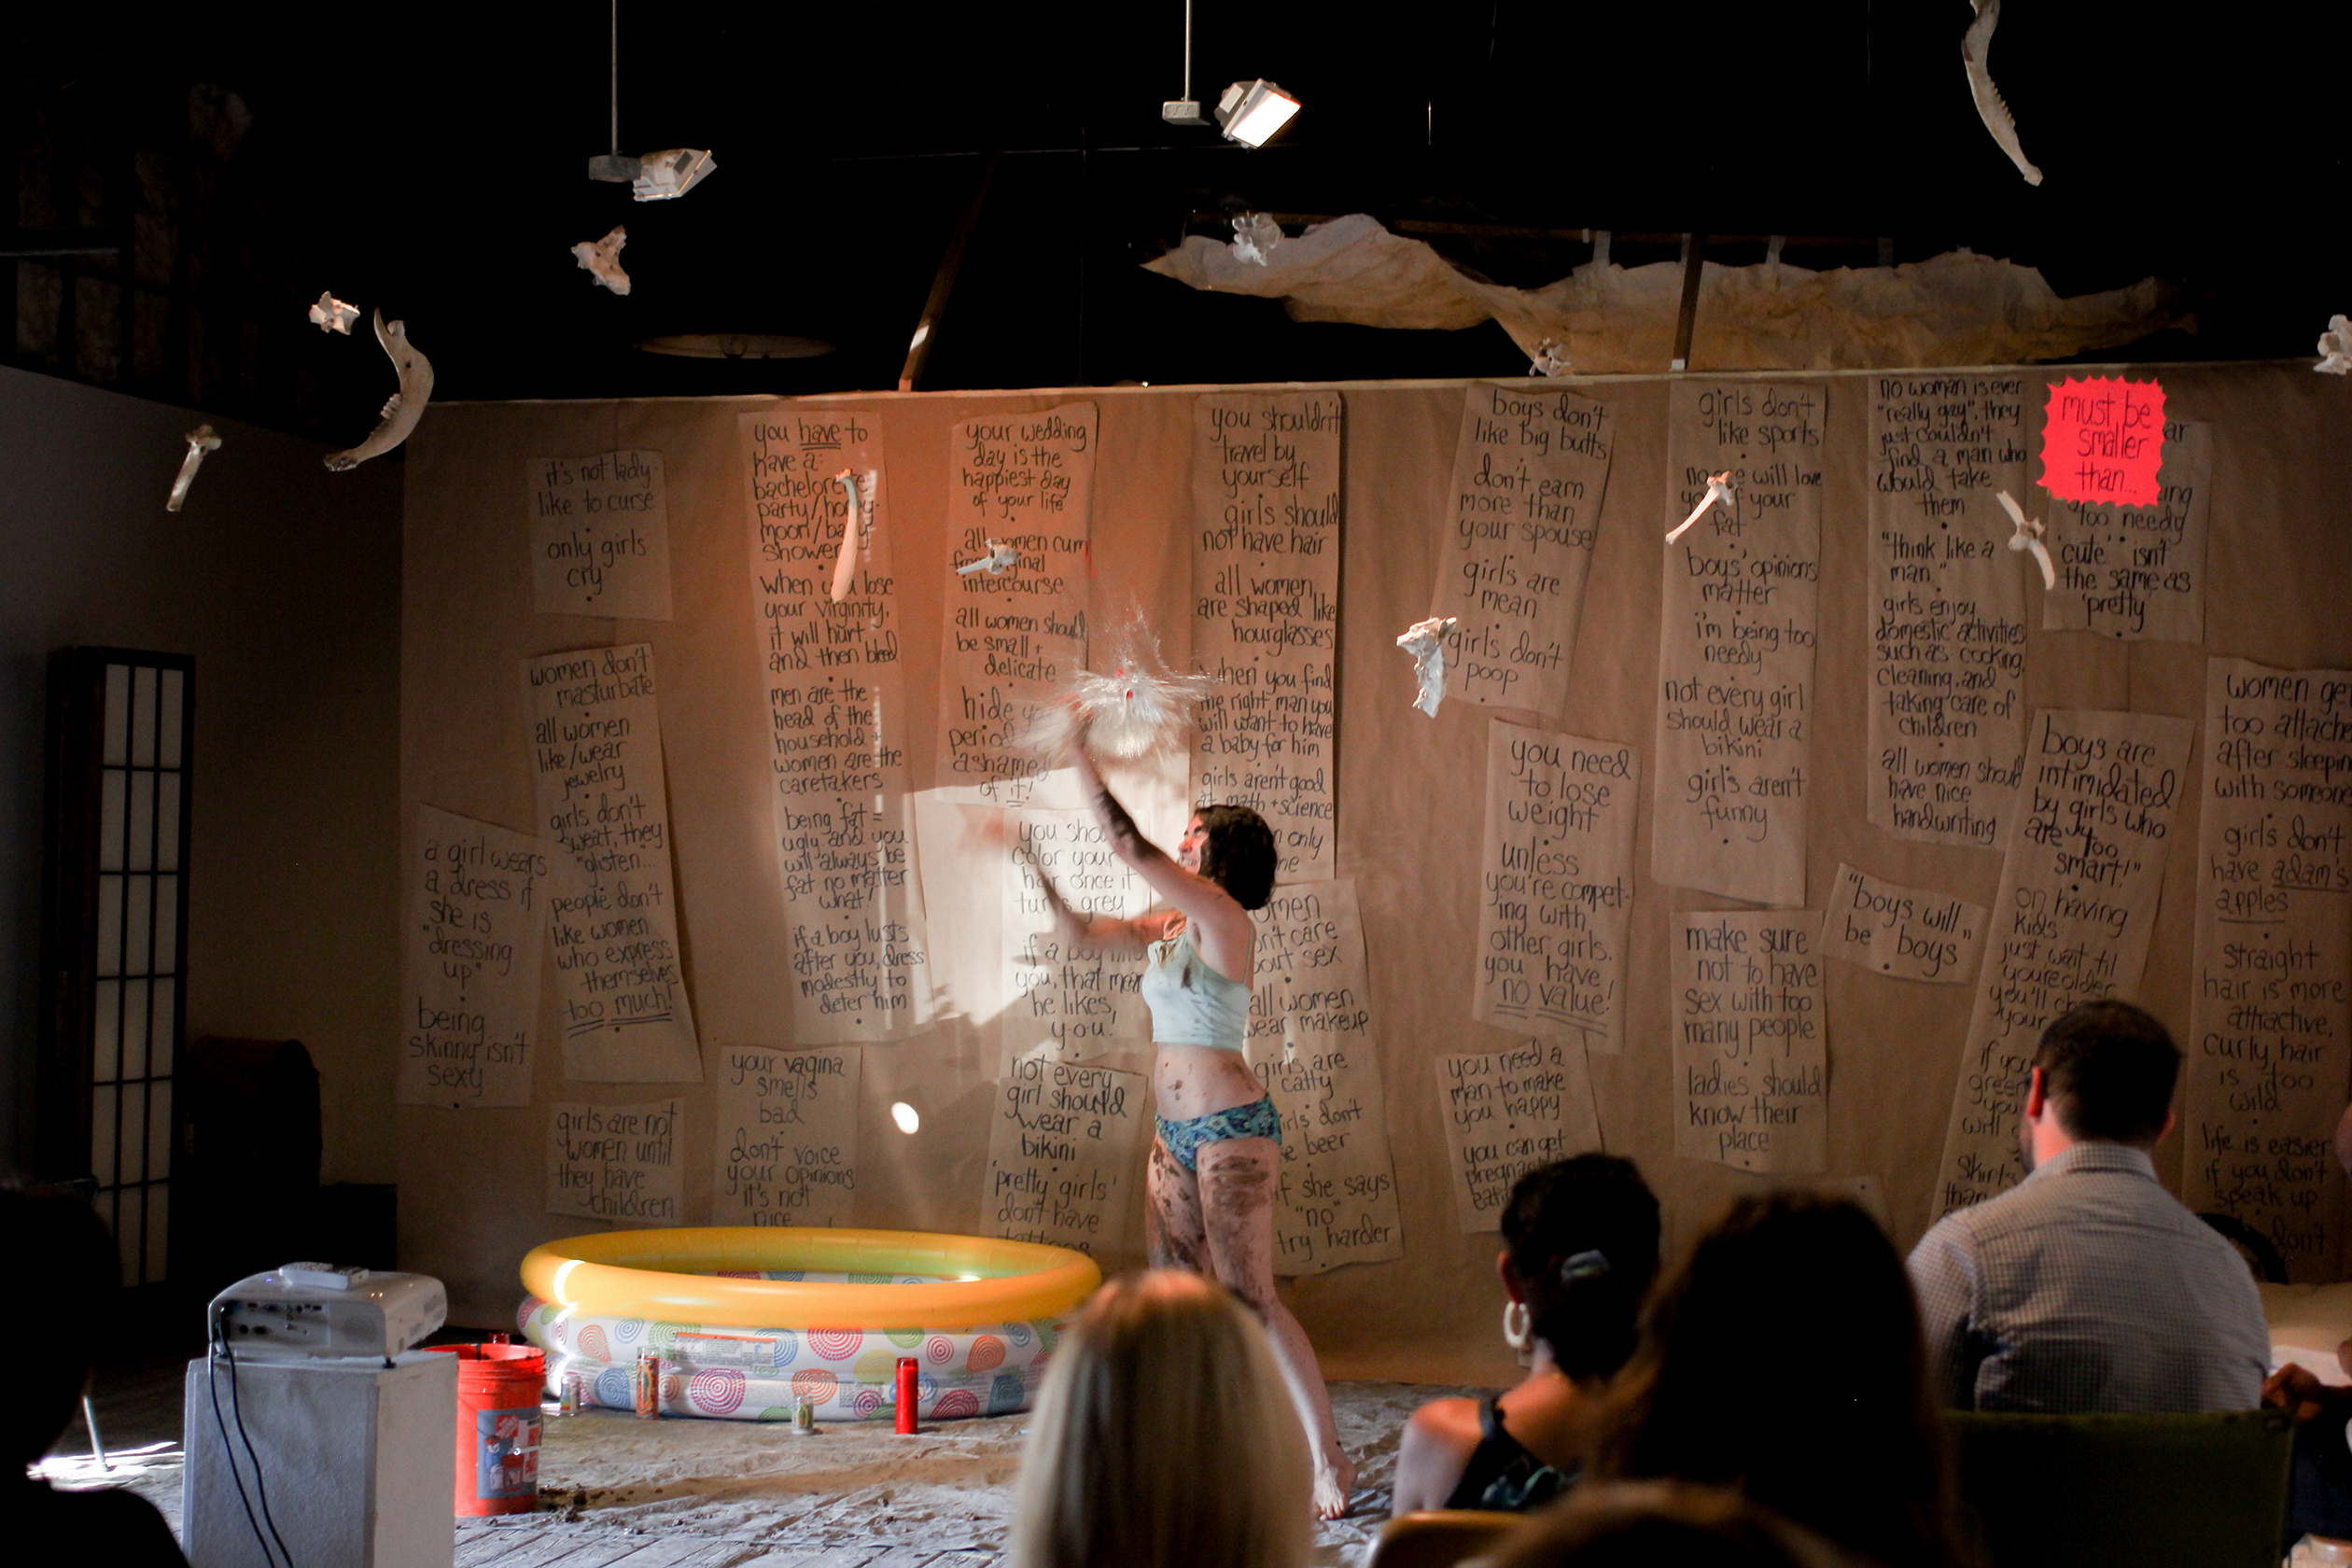 it's not lady-
like to curse
only girls
cry
women don't
masturbate
all women
like/wear
jewelry
girls don't
sweat, they
"glisten"...
people don't
like women
who express
themselves
too much!
a girl wears
a dress if
she is
"dressing
up"
being
skinny isn't
sexy
girls are not
women until
they have
children
you have to
have a:
bachelorette
party/honey-
moon/baby
shower
when you lose
your virginity,
it will hurt
and then bleed
men are the
head of the
household +
women are the
caretakers
being fat =
ugly and you
will always be
fat no matter
what!
if a boy lusts
after you, dress
modestly to
deter him
your vagina
smells
bad
don't voice
your opinions
it's not
nice
your wedding
day is the
happiest day
of your life
all women cum
from
intercourse
all women should
be small +
delicate
hide
period
ashamed
of it!
you
color your
hair once it
turns grey
if a boy
you, that
he likes
you.
not every
girl should
wear a
bikini
'pretty girls'
don't have
tattoos
you shouldn't
travel by
yourself
girls should
not have hair
all women
are shaped like
hourglasses
when you find
the right man you
will want to have
a baby for him
girls aren't good
at math + science
only
women
don't care
about sex
all women
wear makeup
girls are
catty
girls don't
beer
if she says
"no"
try harder
boys don't
like big butts
don't earn
more than
your spouse
girls are
mean
girls don't
poop
you need
to lose
weight
unless
you're compet-
ing with
other girls,
you have
no value!
you need a
man to make
you happy
you can get
girls don't
like sports
no one will love
you if your
fat
boys' opinions
matter
i'm being too
needy
not every girl
should wear a
bikini
girls aren't
funny
make sure
not to have
sex with too
many people
ladies should
know their
place
no woman is ever
"really gay", they
just couldn't
find a man who
would take
them
"think like a
man."
girls enjoy
domestic activities
such as cooking,
cleaning, and
taking care of
children
all women should
have nice
handwriting
"boys will
be boys"
must be
smaller
than...
too needy
'cute' isn't
the same as
'pretty'
boys are
intimidated
by girls who
are "too
smart!"
on having
kids
just wait til
you're older
you'll
your
if you
green
you
will
skirts
than
women get
too attached
after sleeping
with someone
girls don't
have adam's
apples
straight
hair is more
attractive,
curly hair
is too
wild
life is easier
if you don't
speak up
don't